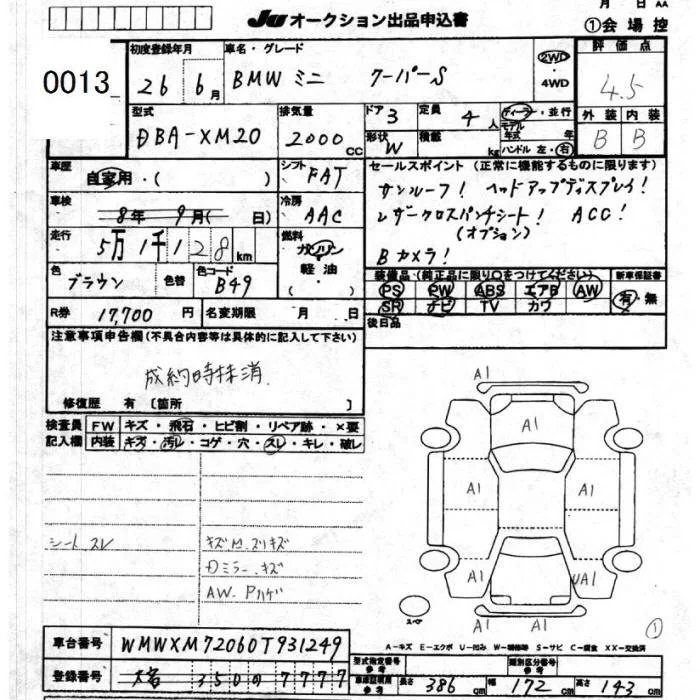 月 日 AA
JU オークション出品申込書
①会場控
0013
初度登録年月 26年 6月
車名・グレード BMW ミニ クーパーS
2WD・4WD
評価点 4.5
型式 DBA-XM20
排気量 2000 CC
ドア 3
定員 4人
形状 W
積載 kg
ディーラー・並行
モデル年式 年
ハンドル 左・右
外装 内装
B B
車歴 自家用・( )
シフト FAT
セールスポイント (正常に機能するものに限ります)
サンルーフ! ヘッドアップディスプレイ!
レザークロスパンチシート! ACC!
(オプション)
Bカメラ!
車検 8年 9月( 日)
冷房 AAC
走行 5万1千128km
燃料 ガソリン・軽油・( )
色 ブラウン
色替
色コード B49
装備品・(純正品に限り○をつけてください)
新車保証書
PS PW ABS エアB AW
SR ナビ TV カワ
有・無
R券 17,700円
名変期限 月 日
後日品
注意事項申告欄(不具合内容等は具体的に記入して下さい)
成約時抹消
修復歴 有 [箇所 ]
検査員記入欄
FW キズ・飛石・ヒビ割・リペア跡・×要
内装 キズ・汚レ・コゲ・穴・スレ・キレ・破レ
シートスレ
キズM.ズリキズ
Dミラーキズ
AW.Pハゲ
A1
A1
A1 A1
A1 UA1
A1 A1
スペア
①
A-キズ E-エクボ U-凹み W-補修跡 S-サビ C-腐食 XX-交換済
車台番号 WMWXM72060T931249
登録番号 3500 7777
型式指定番号 参考
類別区分番号 参考
車庫証明用 参考 長さ 386cm 幅 172cm 高さ 143cm